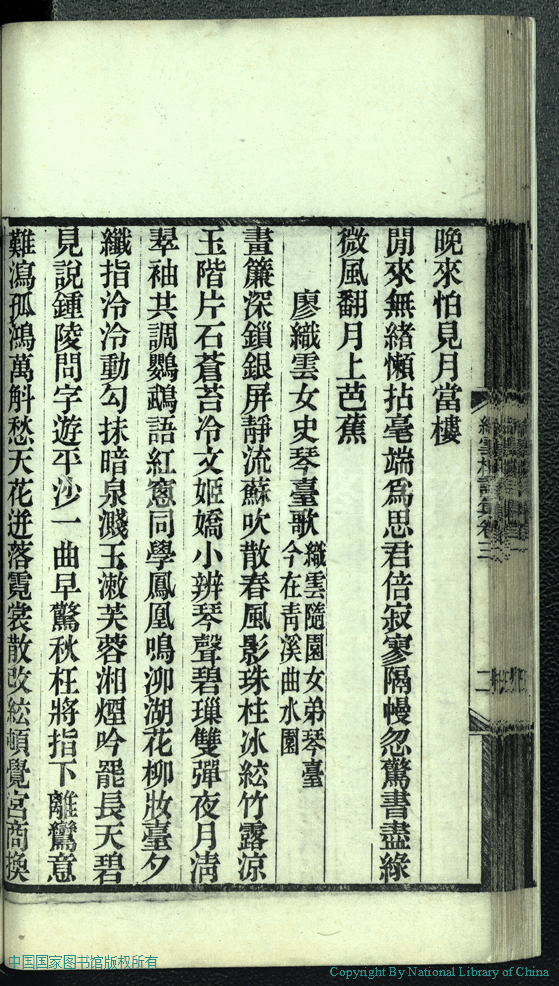 晚來怕見月當樓
閒來無緒懶拈毫端爲思君倍寂寥隔幔忽驚書盡緣
微風翻月上芭蕉
廖織雲女史琴臺歌織雲隨園女弟琴臺今在靑溪曲水園
畫簾深鎖銀屏靜流蘇吹散春風影珠柱冰絃竹露凉
玉階片石蒼苔冷文姬嬌小辨琴聲碧璅雙彈夜月淸
翠袖共調鸚鵡語紅窻同學鳳凰鳴泖湖花柳妝臺夕
纖指泠泠動勾抹暗泉濺玉漱芙蓉湘煙吟罷長天碧
見說鍾陵問字遊平沙一曲早驚秋枉將指下離鸞意
難瀉孤鴻萬斛愁天花迸落霓裳散改絃頓覺宮商換
卷三
二
中国国家图书馆版权所有
Copyright By National Library of China